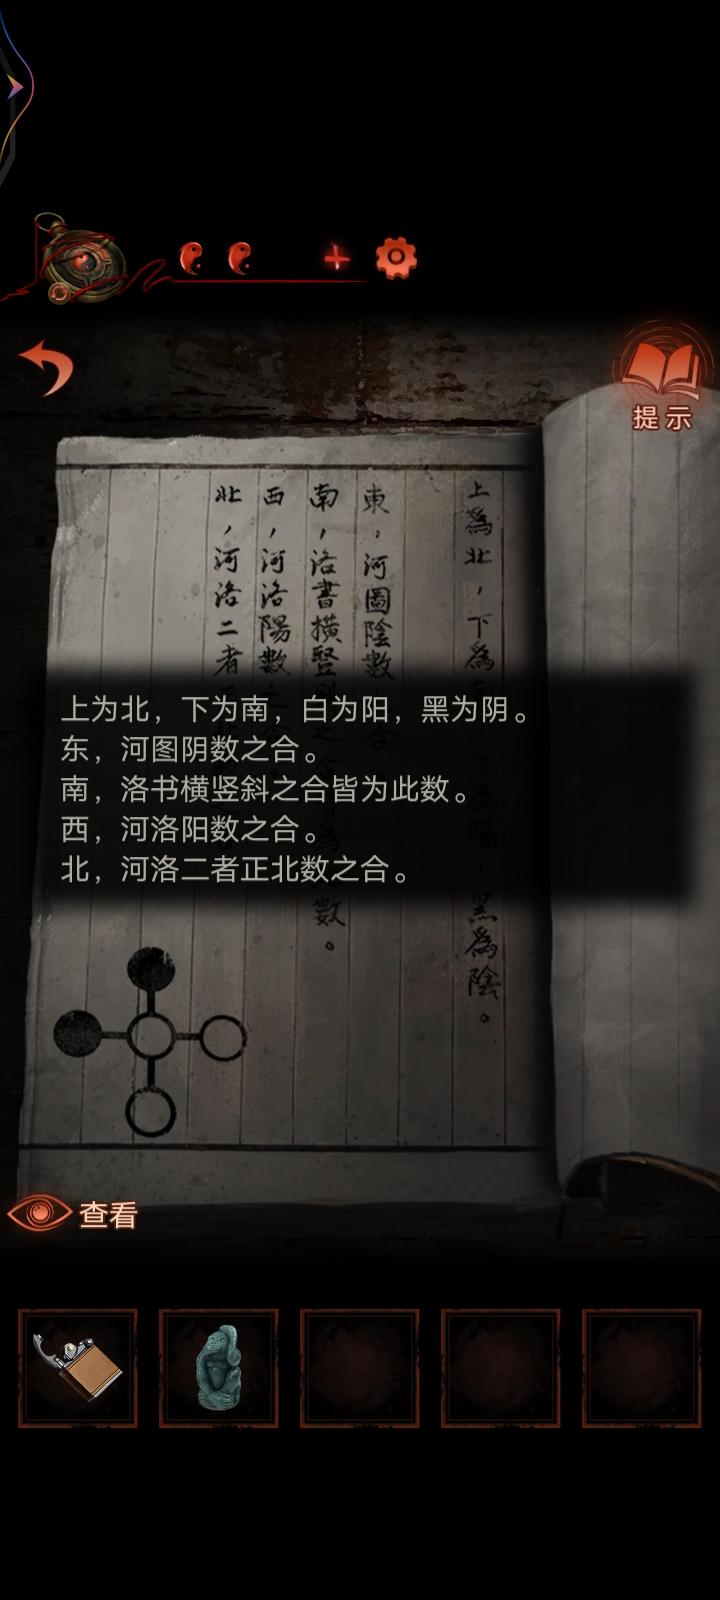 提示
上為北，下為
東，河圖陰數
南，洛書橫豎
數。
西，河洛陽數
北，河洛二者
黑為陰。
上为北，下为南，白为阳，黑为阴。
东，河图阴数之合。
南，洛书横竖斜之合皆为此数。
西，河洛阳数之合。
北，河洛二者正北数之合。
查看